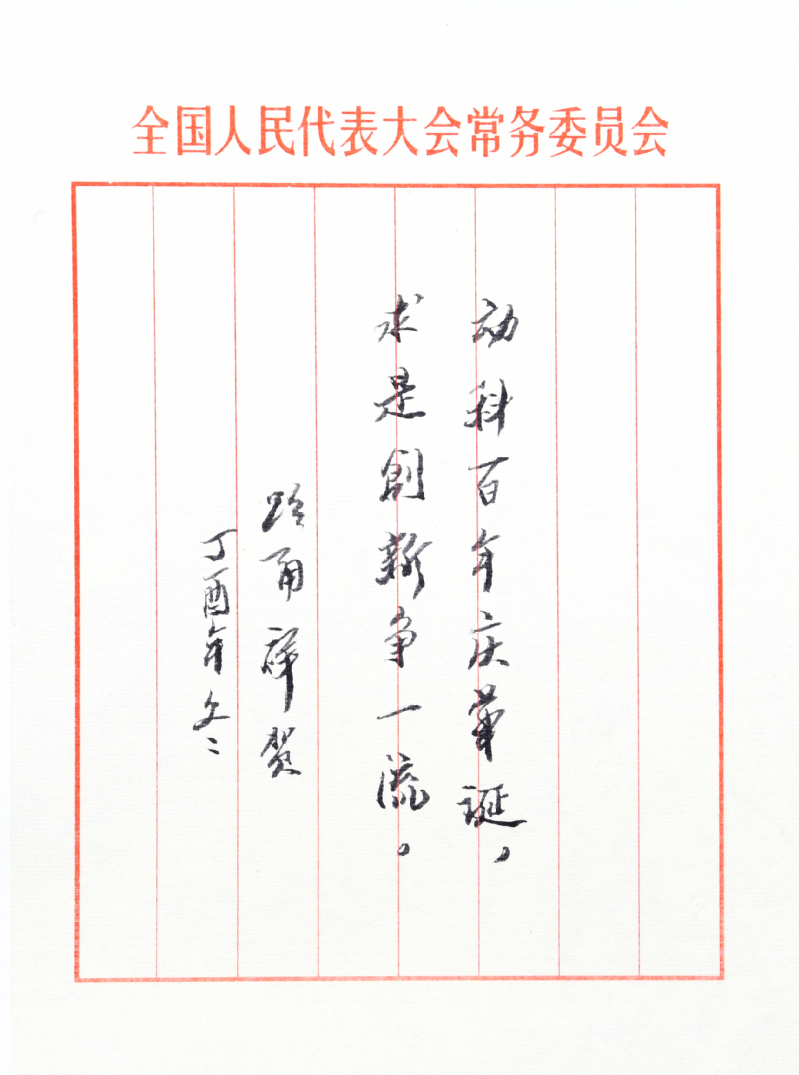 全国人民代表大会常务委员会
动科百年庆华诞，
求是創新争一流。
路甬祥贺
丁酉年冬